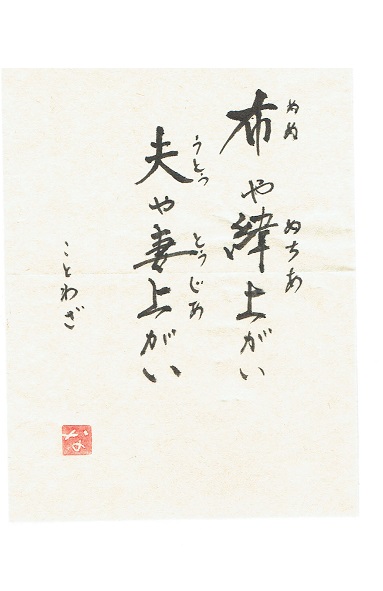 ぬぬ ぬちあ
布や緯上がい
うとぅ とぅじあ
夫や妻上がい
ことわざ